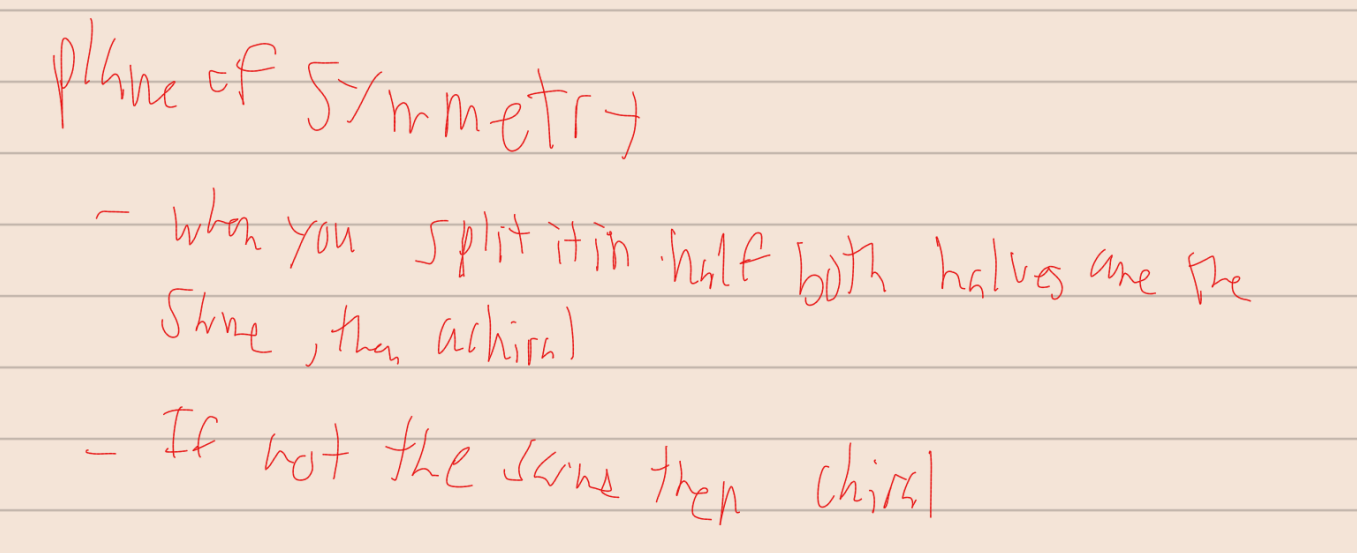 Plane of Symmetry
- when you split it in half both halves are the
same, then achiral
- If not the same then chiral